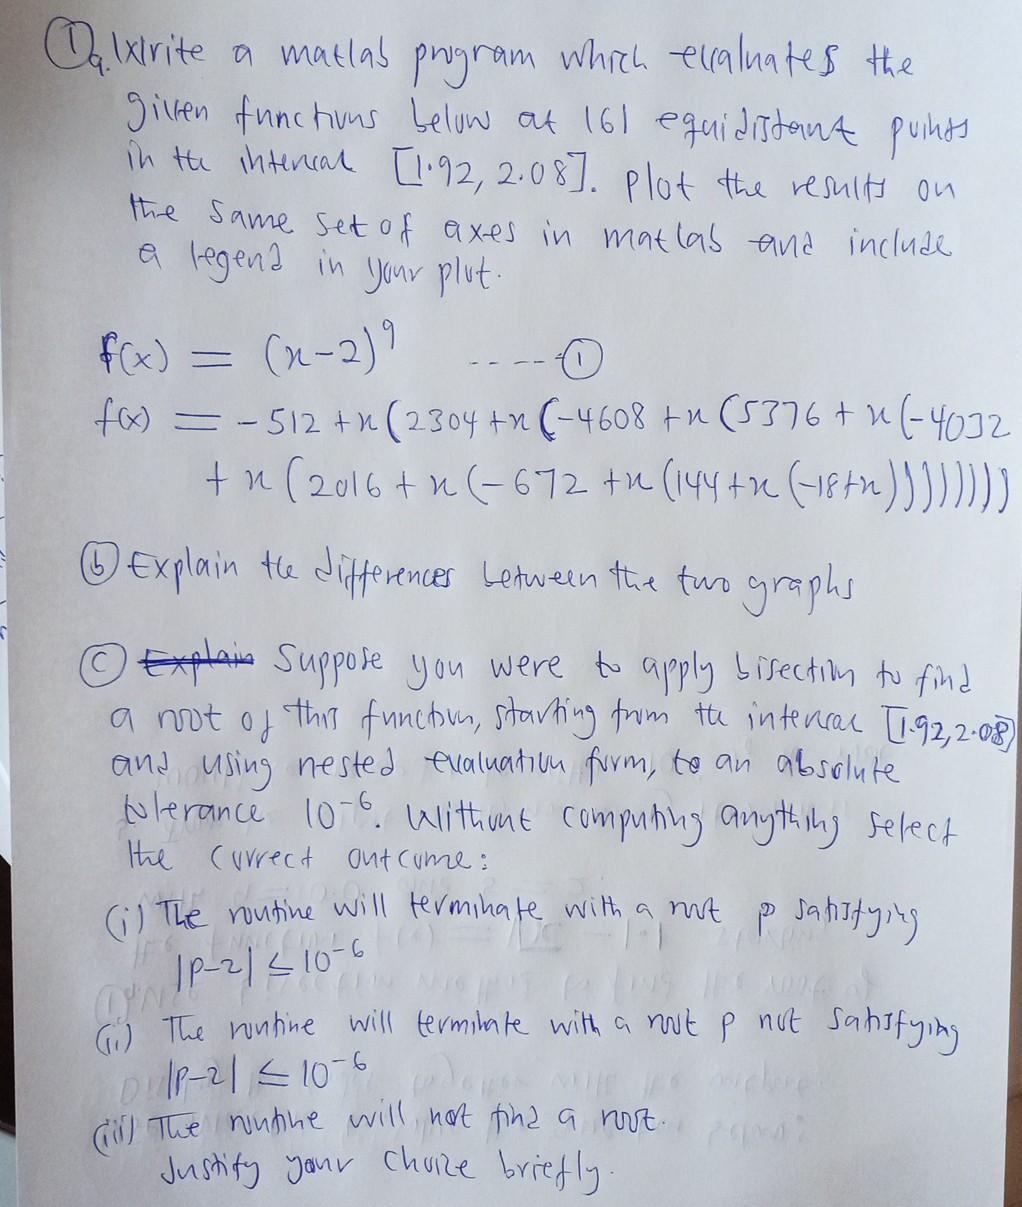 ① a. Write a matlab program which evaluates the
given functions below at 161 equidistant points
in the interval [1.92, 2.08]. Plot the results on
the same set of axes in matlab and include
a legend in your plot.
f(x) = (x-2)⁹ ----- ①
f(x) = -512 + x(2304 + x(-4608 + x(5376 + x(-4032
+ x(2016 + x(-672 + x(144 + x(-18+x))))))))
ⓑ Explain the differences between the two graphs
ⓒ Explain Suppose you were to apply bisection to find
a root of this function, starting from the interval [1.92, 2.08]
and using nested evaluation form, to an absolute
tolerance 10⁻⁶. Without computing anything select
the correct outcome:
(i) The routine will terminate with a root p satisfying
|p-2| ≤ 10⁻⁶
(ii) The routine will terminate with a root p not satisfying
|p-2| ≤ 10⁻⁶
(iii) The routine will not find a root.
Justify your choice briefly.